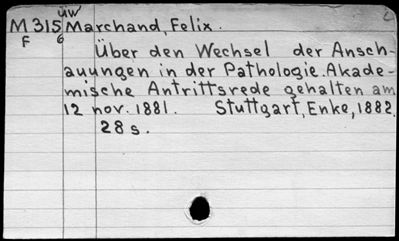 üw
M 315 Marchand, Felix.
F 6
Über den Wechsel der Ansch-
auungen in der Pathologie. Akade-
mische Antrittsrede gehalten am
12 nov. 1881. Stuttgart, Enke, 1882.
28 s.